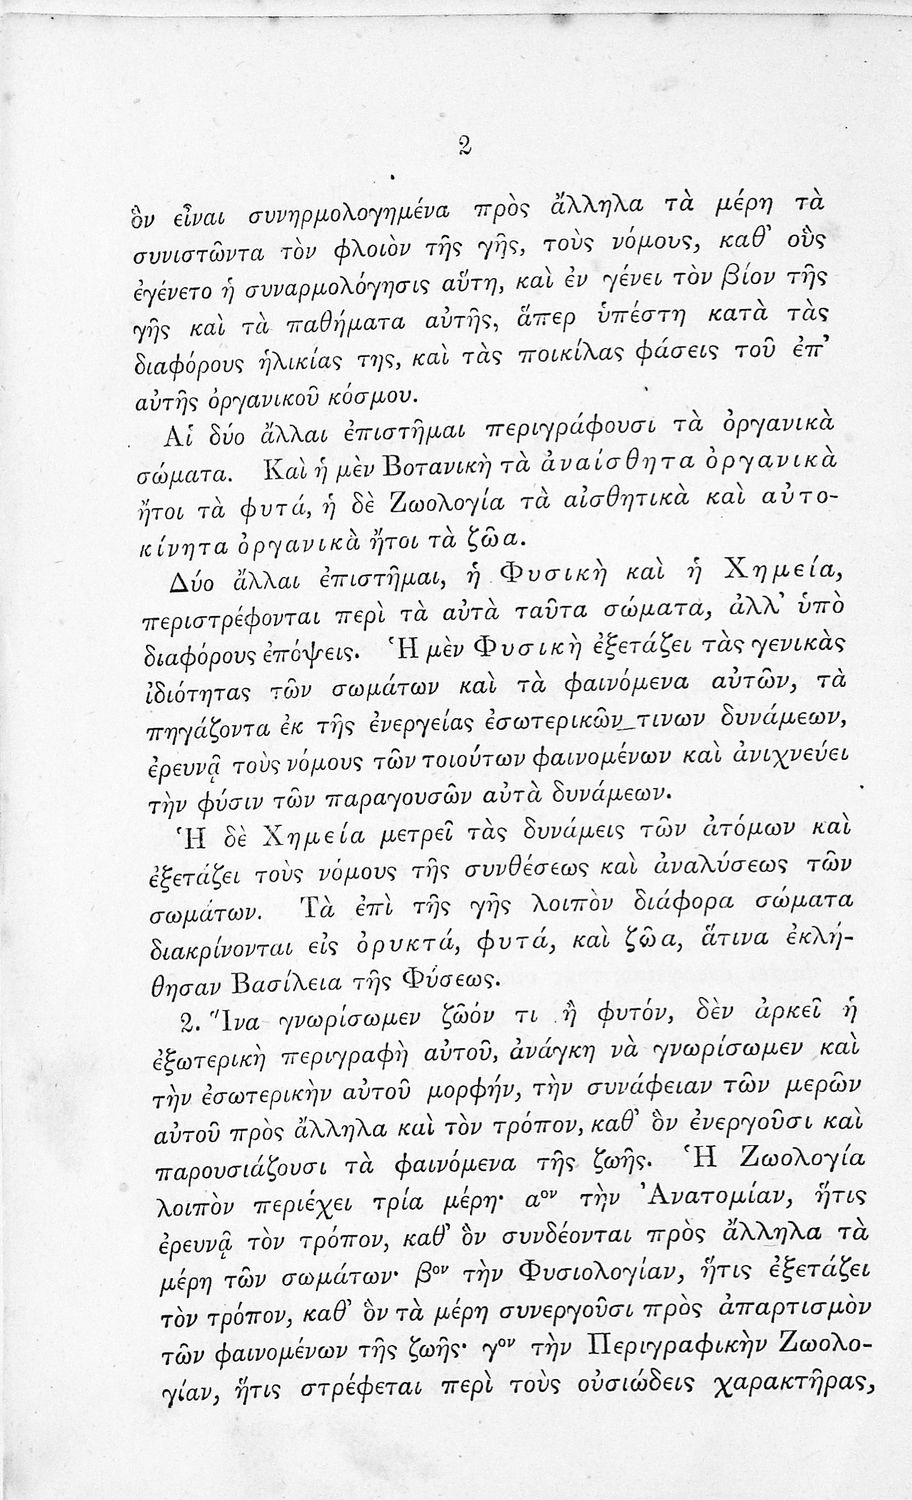 2
ὃν εἶναι συνηρμολογημένα πρὸς ἄλληλα τὰ μέρη τὰ
συνιστῶντα τὸν φλοιὸν τῆς γῆς, τοὺς νόμους, καθ’ οὓς
ἐγένετο ἡ συναρμολόγησις αὕτη, καὶ ἐν γένει τὸν βίον τῆς
γῆς καὶ τὰ παθήματα αὐτῆς, ἅπερ ὑπέστη κατὰ τὰς
διαφόρους ἡλικίας της, καὶ τὰς ποικίλας φάσεις τοῦ ἐπ’
αὐτῆς ὀργανικοῦ κόσμου.
Αἱ δύο ἄλλαι ἐπιστῆμαι περιγράφουσι τὰ ὀργανικὰ
σώματα. Καὶ ἡ μὲν Βοτανικὴ τὰ ἀναίσθητα ὀργανικὰ
ἤτοι τὰ φυτά, ἡ δὲ Ζωολογία τὰ αἰσθητικὰ καὶ αὐτο-
κίνητα ὀργανικὰ ἤτοι τὰ ζῶα.
Δύο ἄλλαι ἐπιστῆμαι, ἡ Φυσικὴ καὶ ἡ Χημεία,
περιστρέφονται περὶ τὰ αὐτὰ ταῦτα σώματα, ἀλλ’ ὑπὸ
διαφόρους ἐπόψεις. Ἡ μὲν Φυσικὴ ἐξετάζει τὰς γενικὰς
ἰδιότητας τῶν σωμάτων καὶ τὰ φαινόμενα αὐτῶν, τὰ
πηγάζοντα ἐκ τῆς ἐνεργείας ἐσωτερικῶν_τινων δυνάμεων,
ἐρευνᾷ τοὺς νόμους τῶν τοιούτων φαινομένων καὶ ἀνιχνεύει
τὴν φύσιν τῶν παραγουσῶν αὐτὰ δυνάμεων.
Ἡ δὲ Χημεία μετρεῖ τὰς δυνάμεις τῶν ἀτόμων καὶ
ἐξετάζει τοὺς νόμους τῆς συνθέσεως καὶ ἀναλύσεως τῶν
σωμάτων. Τὰ ἐπὶ τῆς γῆς λοιπὸν διάφορα σώματα
διακρίνονται εἰς ὀρυκτά, φυτά, καὶ ζῶα, ἅτινα ἐκλή-
θησαν Βασίλεια τῆς Φύσεως.
2. Ἵνα γνωρίσωμεν ζῶόν τι ἢ φυτόν, δὲν ἀρκεῖ ἡ
ἐξωτερικὴ περιγραφὴ αὐτοῦ, ἀνάγκη νὰ γνωρίσωμεν καὶ
τὴν ἐσωτερικὴν αὐτοῦ μορφήν, τὴν συνάφειαν τῶν μερῶν
αὐτοῦ πρὸς ἄλληλα καὶ τὸν τρόπον, καθ’ ὃν ἐνεργοῦσι καὶ
παρουσιάζουσι τὰ φαινόμενα τῆς ζωῆς. Ἡ Ζωολογία
λοιπὸν περιέχει τρία μέρη· αον τὴν Ἀνατομίαν, ἥτις
ἐρευνᾷ τὸν τρόπον, καθ’ ὃν συνδέονται πρὸς ἄλληλα τὰ
μέρη τῶν σωμάτων· βον τὴν Φυσιολογίαν, ἥτις ἐξετάζει
τὸν τρόπον, καθ’ ὃν τὰ μέρη συνεργοῦσι πρὸς ἀπαρτισμὸν
τῶν φαινομένων τῆς ζωῆς· γον τὴν Περιγραφικὴν Ζωολο-
γίαν, ἥτις στρέφεται περὶ τοὺς οὐσιώδεις χαρακτῆρας,